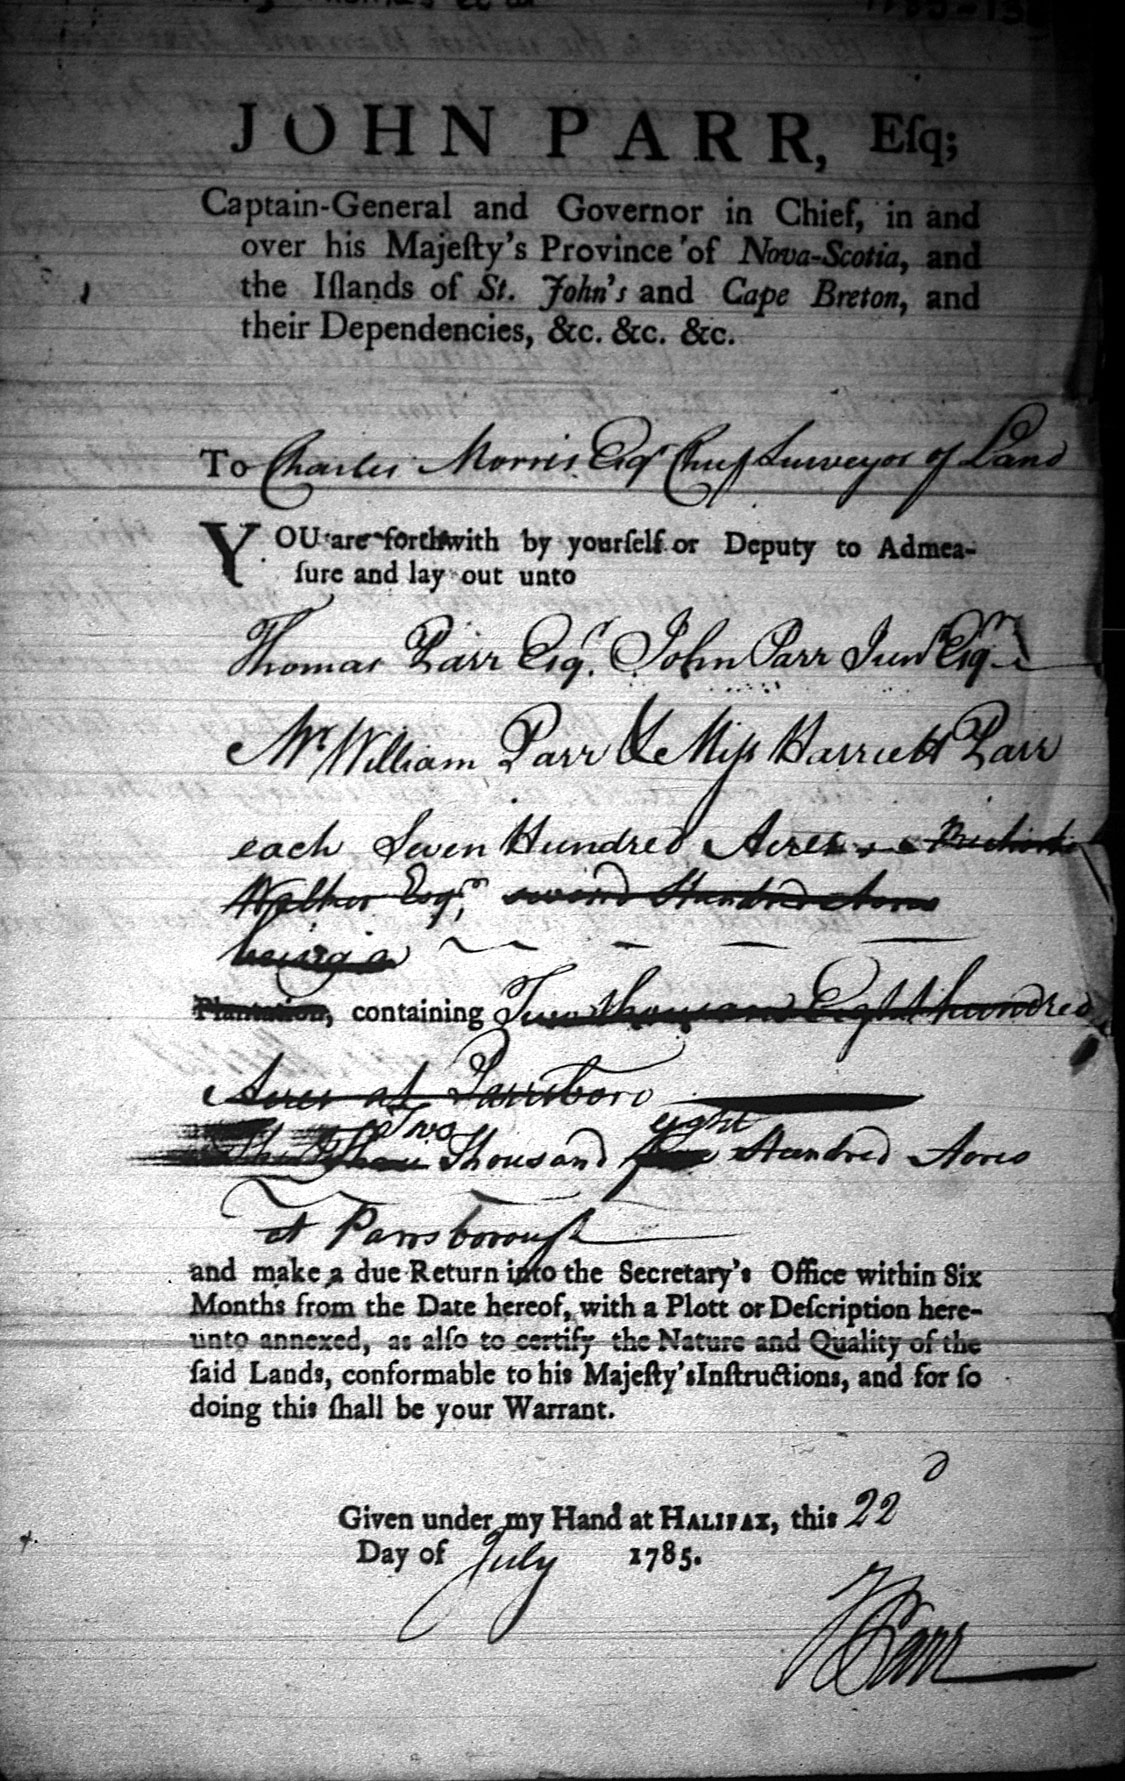 JOHN PARR, Eſq;
Captain-General and Governor in Chief, in and
over his Majeſty's Province of Nova-Scotia, and
the Iſlands of St. John's and Cape Breton, and
their Dependencies, &c. &c. &c.
To Charles Morris Esqr Chief Surveyor of Land
YOU are forthwith by yourſelf or Deputy to Admea-
ſure and lay out unto
Thomas Parr Esqr. John Parr Junr Esqr
Mr William Parr & Miss Harriett Parr
each Seven Hundred Acres
Walker Esqr, Hundred Acres
being a
Plantation, containing Two thousand Eight hundred
Acres at Parrsboro
Two Thousand eight Hundred Acres
at Parrsborough
and make a due Return into the Secretary's Office within Six
Months from the Date hereof, with a Plott or Deſcription here-
unto annexed, as alſo to certify the Nature and Quality of the
ſaid Lands, conformable to his Majeſty's Inſtructions, and for ſo
doing this ſhall be your Warrant.
Given under my Hand at HALIFAX, this 22d
Day of July 1785.
J Parr